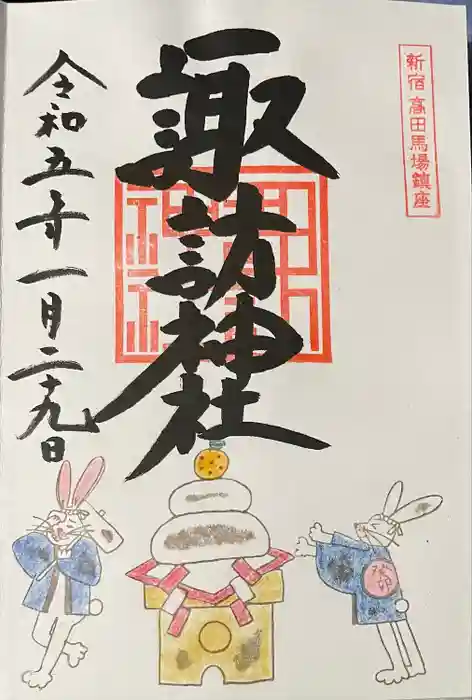 新宿 高田馬場鎮座
諏訪神社
令和五年一月二十九日
癸卯